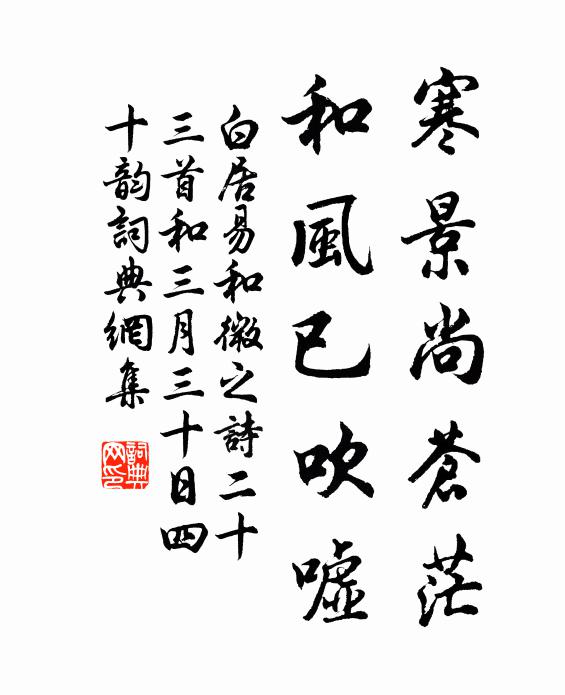 寒景尚蒼茫
和風已吹噓
白居易和微之詩二十
三首和三月三十日四
十韵詞典網集
詞典網印